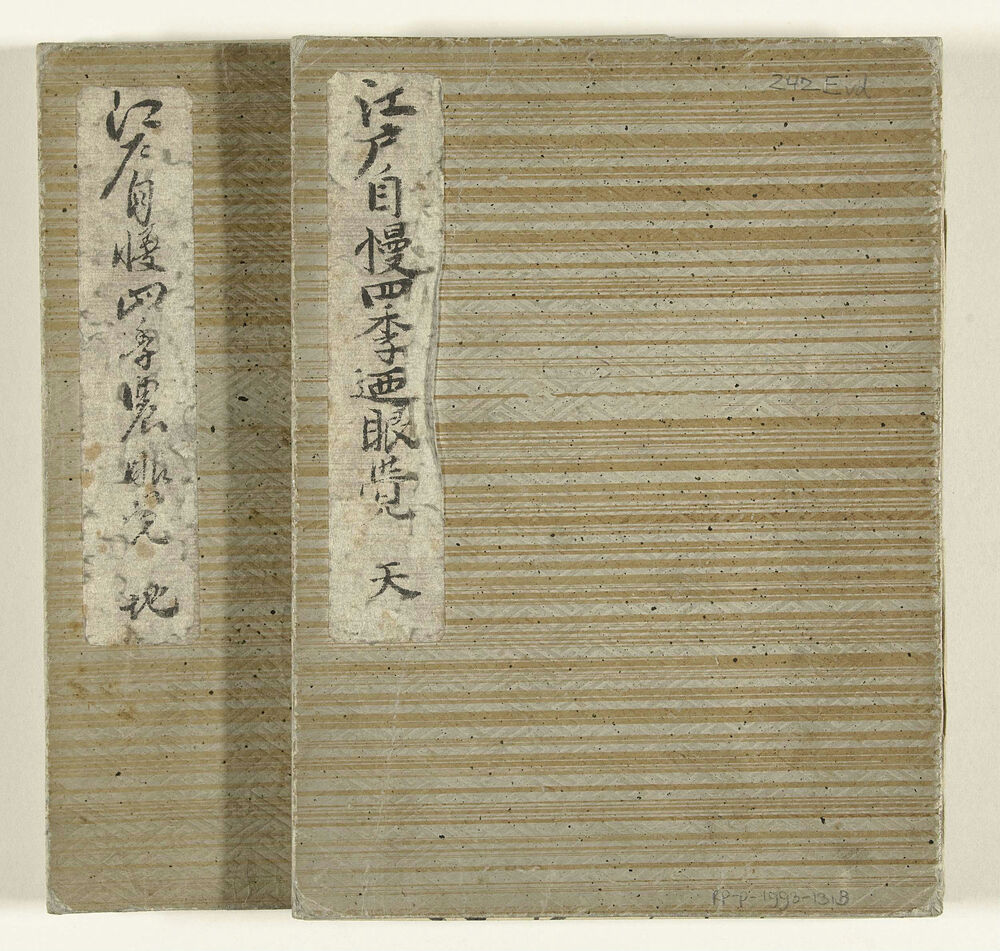 江戸自慢四季廼眼覚 天
江戸自慢四季農眼覚 地
242 Evd
RP-P-1993-131B